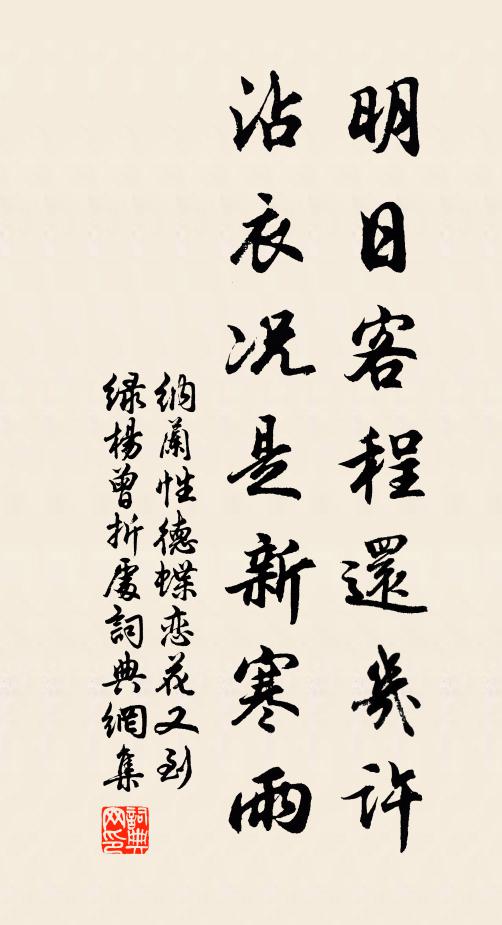 明日客程還幾許
沾衣況是新寒雨
納蘭性德蝶恋花又到
绿楊曾折處詞典網集
詞典网印